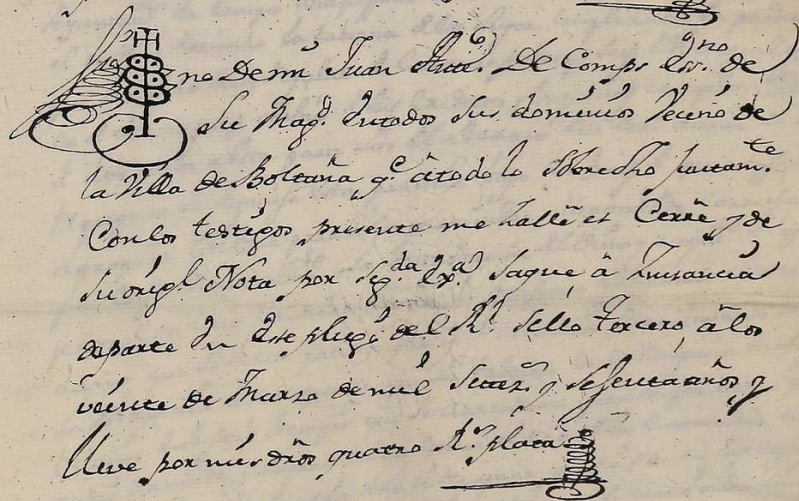 no De mi Juan Antt.º De Comps Ess.no de
Su Mag.d En todos sus dominios Vecino de
la Villa de Boltaña q.e â todo lo Sbredho juntam.te
Con los testigos presente me hallê et Cerrê y de
su origl Nota por seg.da Ex.a saque â Instancia
de parte En Este pliego del R.l Sello tercero, â los
veinte de Marzo de mil Setez.s y Sesenta años y
lleve por mis dr̃os quatro R.s plata